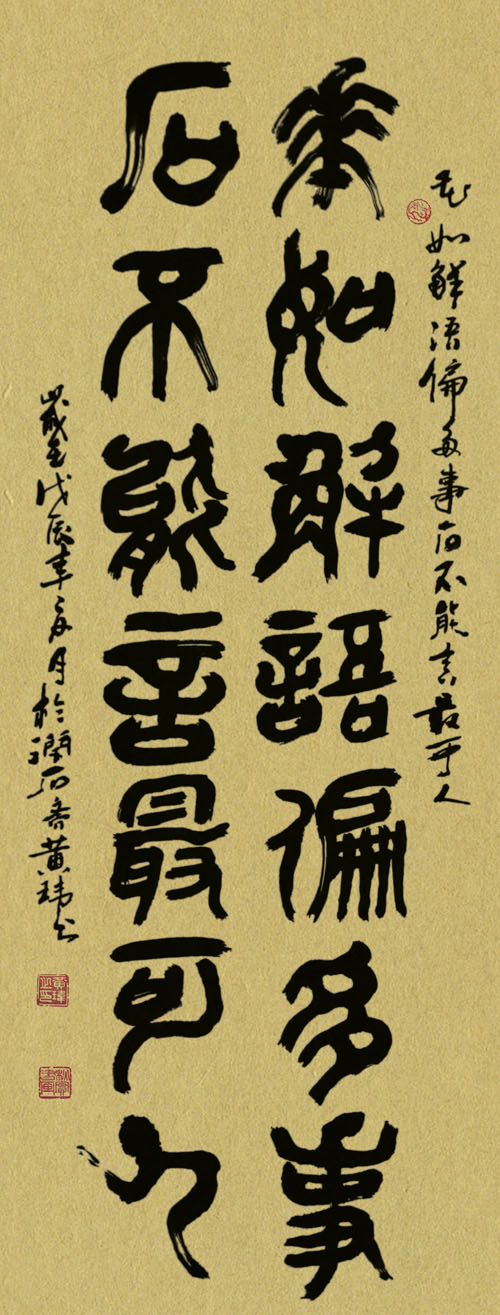 花如解语偏多事石不能言最可人
華如解語偏多事
石不能言最可人
歲在戊辰年月於潤石斋黄玮书